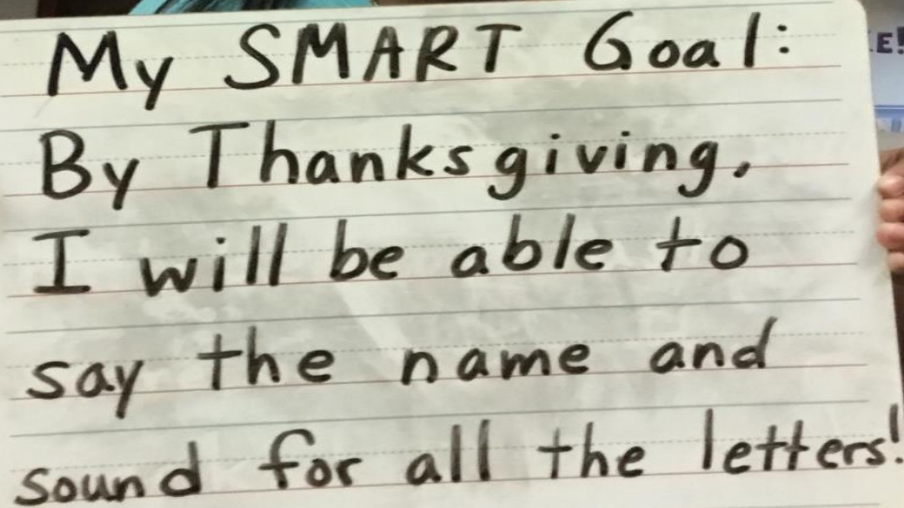 My SMART Goal:
By Thanksgiving,
I will be able to
say the name and
sound for all the letters!